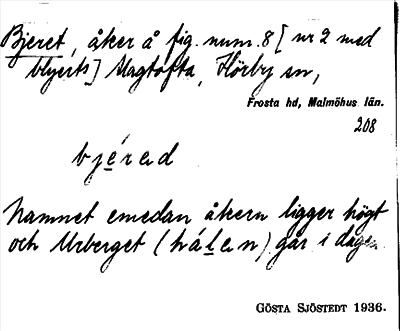 Bjeret, åker å fig. num. 8 [nr 2 med
blyerts] Magtofta, Hörby sn,
Frosta hd, Malmöhus län.
208
bjérad
Namnet emedan åkern ligger högt
och Urberget (hálan) går i dagen.
GÖSTA SJÖSTEDT 1936.